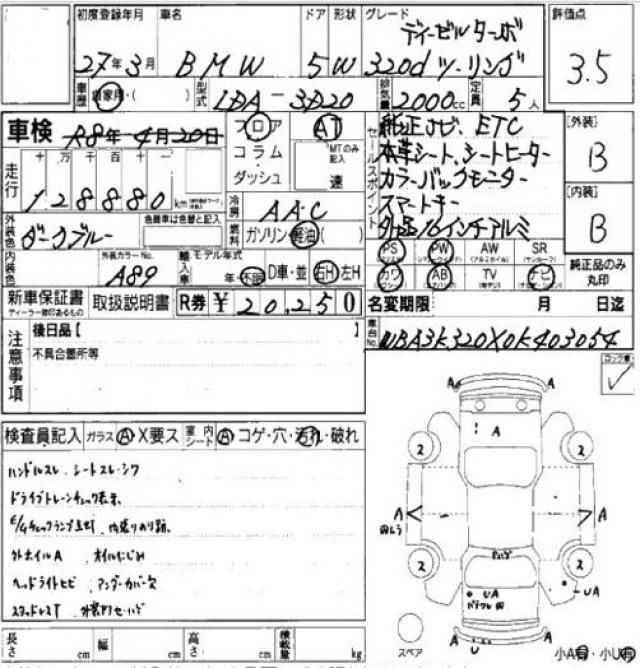 初度登録年月 車名 ドア 形状 グレード 評価点
27年3月 BMW 5W ディーゼルターボ
320d ツーリング 3.5
車歴 自家用・( ) 型式 LDA-3D20 排気量 2000cc 定員 5人
車検 R8年4月20日 フロア AT 純正ナビ、ETC [外装]
コラム MTのみ記入 本革シート、シートヒーター B
走行 十万千百十一 ダッシュ 速 セールスポイント カラーバックモニター
128880km 冷房 AAC スマートキー [内装]
外装色 ダークブルー 色替車は色替と記入 燃料 ガソリン・軽油( ) 外品16インチアルミ B
内装色 外装カラーNo. A89 輸入車 モデル年式 年・不明 D車・並 右H・左H
PS PW AW SR 純正品のみ丸印
カワ AB TV ナビ
新車保証書 取扱説明書 R券 ¥20,250 名変期限 月 日迄
ディーラー捺印あるもの
注意事項 後日品【 】 車台No. WBA3K320X0K403054
不具合箇所等
ロック車
検査員記入 ガラス A X要ス 室内シート A コゲ・穴・汚れ・破れ
ハンドルスレ、シートスレ・シワ
ドライブトレーンチェック表示、
E/gチェックランプ点灯、
外ホイルA オイルにじみ
ヘッドライトヒビ アンダーカバー欠
スタッドレスT
A A
A
2 2
A A
2 2
UA UA
U A
スペア 小A有・小U有
長さ cm 幅 cm 高さ cm 積載量 kg